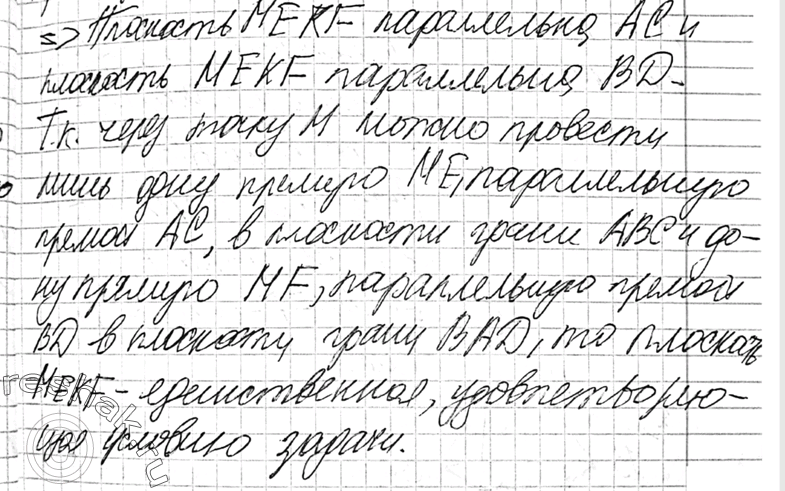 => Плоскость MEKF параллельна AC и
плоскость MEKF параллельна BD.
Т.к. через точку M можно провести
лишь одну прямую ME, параллельную
прямой AC, в плоскости грани ABC и од-
ну прямую MF, параллельную прямой
BD в плоскости грани BAD, то плоскость
MEKF - единственная, удовлетворяю-
щая условию задачи.
reshak.ru